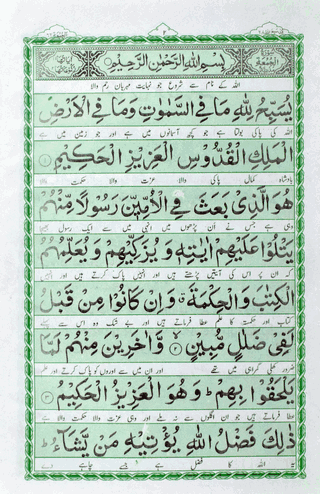 بِسْمِ اللهِ الرَّحْمٰنِ الرَّحِيْمِ
اللہ کے نام سے شروع جو نہایت مہربان رحم والا
يُسَبِّحُ لِلّٰهِ مَا فِي السَّمٰوٰتِ وَمَا فِي الْاَرْضِ
اللہ کی پاکی بولتا ہے جو کچھ آسمانوں میں ہے اور جو زمین میں ہے
الْمَلِكِ الْقُدُّوْسِ الْعَزِيْزِ الْحَكِيْمِ ۝۱
بادشاہ کمال پاکی والا عزت والا حکمت والا
هُوَ الَّذِيْ بَعَثَ فِي الْاُمِّيّٖنَ رَسُوْلًا مِّنْهُمْ
وہی ہے جس نے اَن پڑھوں میں انہی میں سے ایک رسول بھیجا
يَتْلُوْا عَلَيْهِمْ اٰيٰتِهٖ وَيُزَكِّيْهِمْ وَيُعَلِّمُهُمُ
کہ ان پر اس کی آیتیں پڑھتے ہیں اور انہیں پاک کرتے ہیں اور انہیں
الْكِتٰبَ وَالْحِكْمَةَ ۗ وَاِنْ كَانُوْا مِنْ قَبْلُ
کتاب اور حکمت کا علم عطا فرماتے ہیں اور بے شک وہ اس سے پہلے
لَفِيْ ضَلٰلٍ مُّبِيْنٍ ۝۲ وَّاٰخَرِيْنَ مِنْهُمْ لَمَّا
ضرور کھلی گمراہی میں تھے اور ان میں سے اوروں کو پاک کرتے اور علم
يَلْحَقُوْا بِهِمْ ؕ وَهُوَ الْعَزِيْزُ الْحَكِيْمُ ۝۳
عطا فرماتے ہیں جو ان اگلوں سے نہ ملے اور وہی عزت والا حکمت والا ہے
ذٰلِكَ فَضْلُ اللهِ يُؤْتِيْهِ مَنْ يَّشَآءُ ؕ
یہ اللہ کا فضل ہے جسے چاہے دے